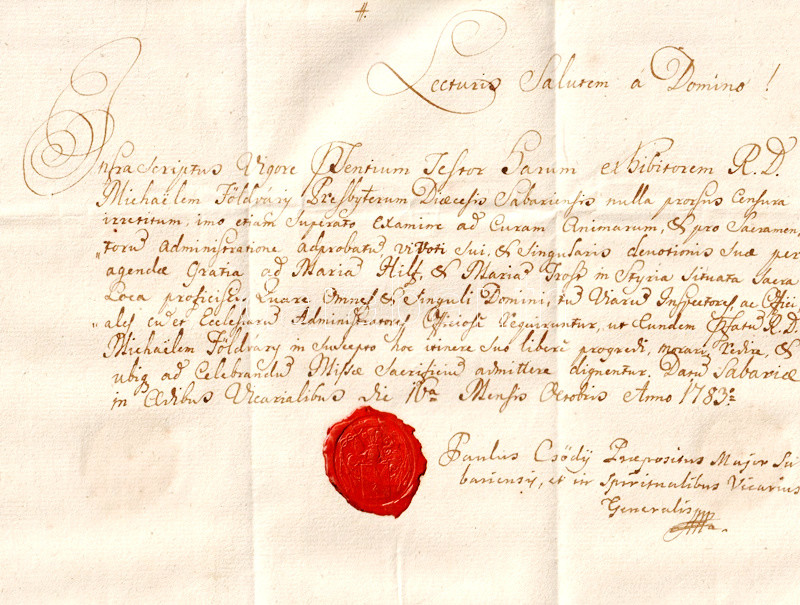 Lecturis Salutem á Domino!
Infrascriptus Vigore Pſentium Testor Harum exhibitorem R.D.
Michaëlem Földváry Presbyterum Diæcesis Sabariensis nulla prorsus Censura
irretitum, imo etiam Superato examine ad Curam Animarum, & pro Sacramen„
„torũ administratione adprobatũ vi Voti Sui, & Singularis devotionis Suæ per
agendæ Gratia ad Maria Hilf, & Maria Trost in Styria Situata Sacra
Loca proficisci. Quare Omnes & Singuli Domini, tũ Viarũ Inspectores, ac Offici„
„ales cũ et Ecclesiarũ Administratores Officiosè requiruntur, ut Eundem Pſatũ R.D.
Michaëlem Földváry in Suscepto hoc itinere Suo liberè progredi, morari, redire, &
ubiq ad Celebrandũ Missæ Sacrificiũ admittere dignentur. Datũ Sabariæ
in Ædibus Vicarialibus die 16a Mensis Octobris Anno 1783.
Paulus Csődy Præpositus Major Sa
bariensis, et in Spiritualibus Vicarius
Generalis